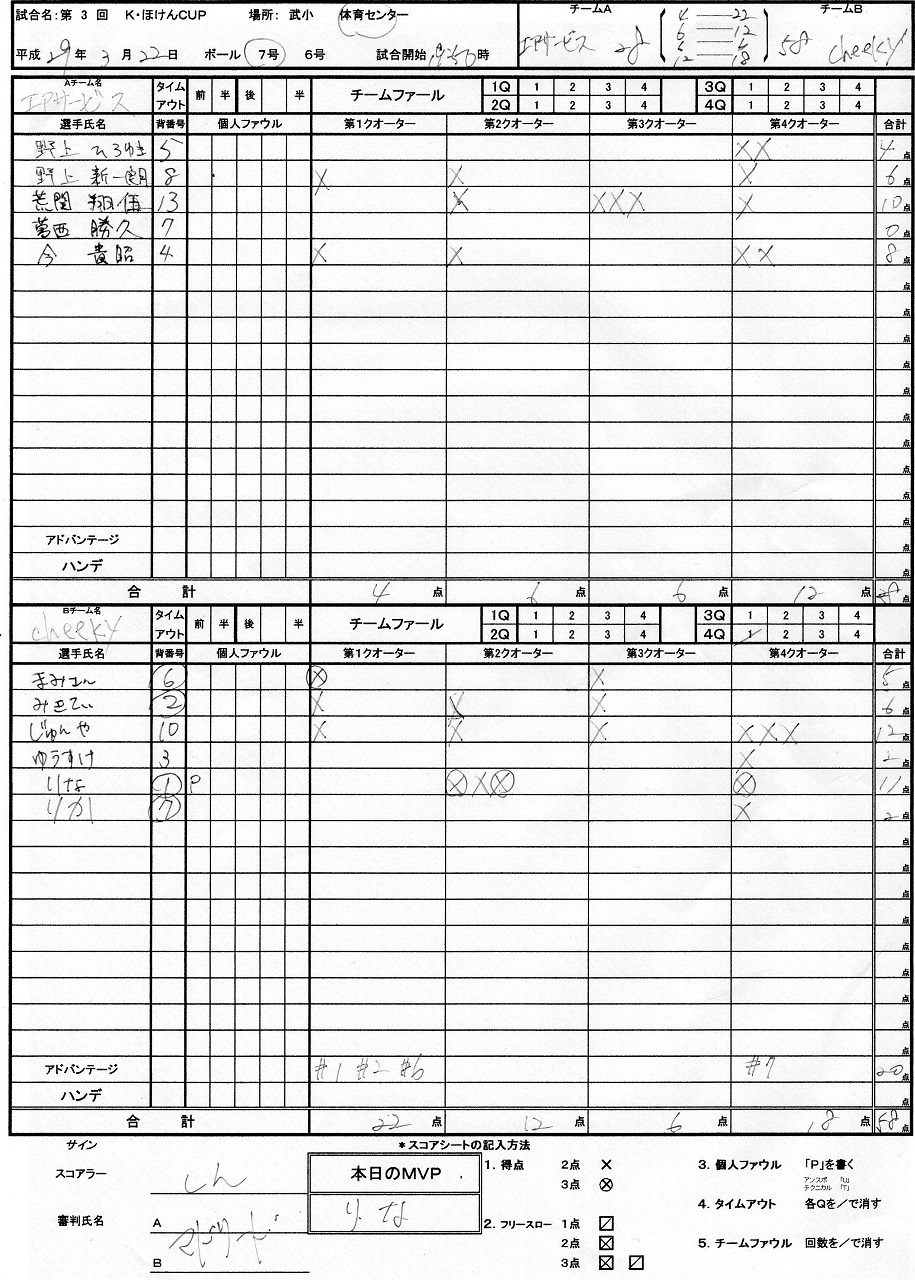 試合名:第 3 回 K・ほけんCUP 場所: 武小 体育センター チームA 4 — 22 チームB
6 — 12
平成 29 年 3 月 22 日 ボール 7号 6号 試合開始 時 IPサービス 28 6 — 6 58 cheeky
12 — 18
Aチーム名 タイム 前 半 後 半 チームファール 1Q 1 2 3 4 3Q 1 2 3 4
IPサービス アウト 2Q 1 2 3 4 4Q 1 2 3 4
選手氏名 背番号 個人ファウル 第1クオーター 第2クオーター 第3クオーター 第4クオーター 合計
野上 ひろゆき 5 XX 4点
野上 新一朗 8 X X X 6点
荒関 13 X XXX X 10点
葛西 勝久 7 0点
今 貴昭 4 X X XX 8点
点
点
点
点
点
点
点
点
点
点
アドバンテージ 点
ハンデ 点
合 計 4 点 6 点 6 点 12 点 28点
Bチーム名 タイム 前 半 後 半 チームファール 1Q 1 2 3 4 3Q 1 2 3 4
cheeky アウト 2Q 1 2 3 4 4Q 1 2 3 4
選手氏名 背番号 個人ファウル 第1クオーター 第2クオーター 第3クオーター 第4クオーター 合計
まみさん ⑥ ⊗ X 5点
みきてぃ ② X X X 6点
じゅんや 10 X X X XXX 12点
ゆうすけ 3 X 2点
りな ① P ⊗X⊗ ⊗ 11点
りか ⑦ X 2点
点
点
点
点
点
点
点
点
点
アドバンテージ #1 #2 #6 #7 20点
ハンデ 点
合 計 22 点 12 点 6 点 18 点 58点
サイン *スコアシートの記入方法
スコアラー しん 本日のMVP 1. 得点 2点 × 3. 個人ファウル 「P」を書く
3点 ⊗ アンスポ 「U」
テクニカル 「T」
りな 4. タイムアウト 各Qを/で消す
審判氏名 A 2. フリースロー 1点 ☐
2点 ☒ 5. チームファウル 回数を/で消す
B 3点 ☒ ☐